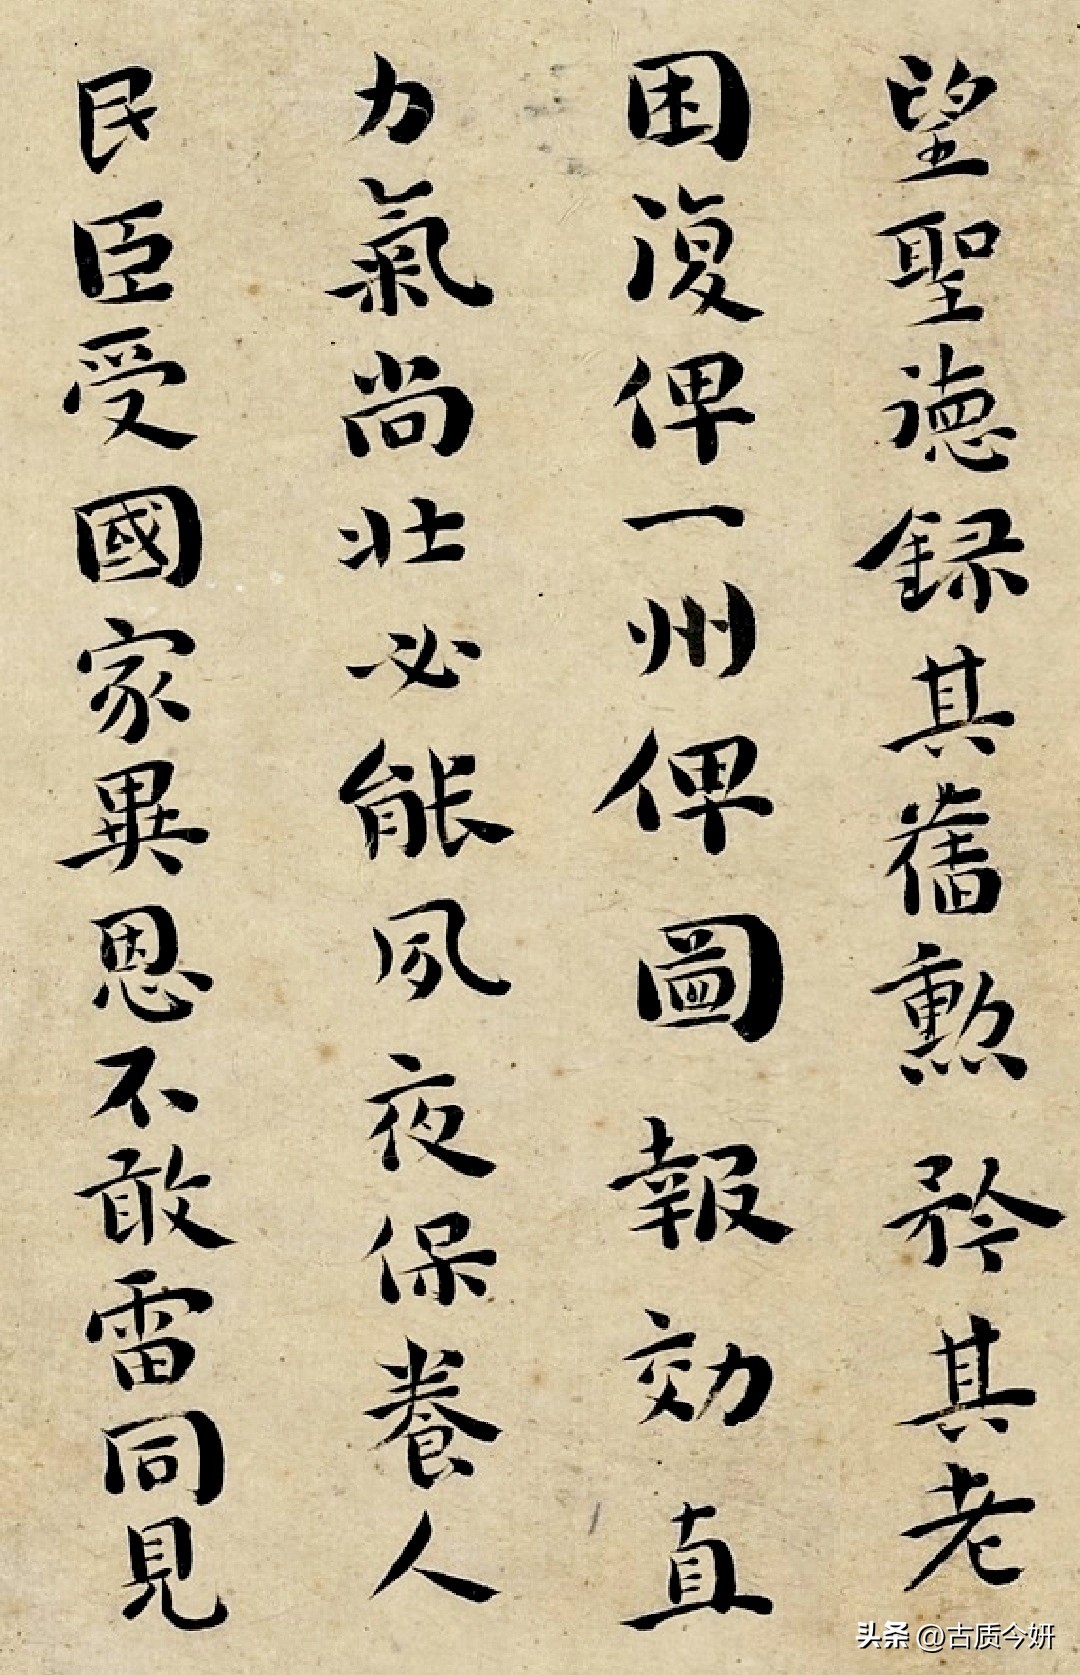 望聖德録其舊勲矜其老
困復俾一州俾圖報効直
力氣尚壯必能夙夜保養人
民臣受國家異恩不敢雷同見
头条 @古质今妍